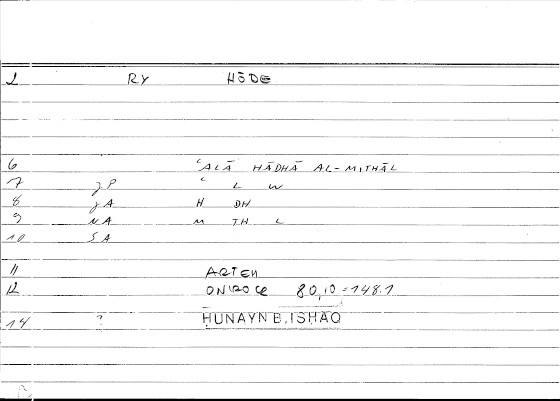 1 RY HŌDE
6 ʿALĀ HĀDHĀ AL-MITHĀL
7 JP ʿ L W
8 JA H DH
9 NA M TH L
10 SA
11 ARTEM
12 ONIROCR 80,10 = 148.1
14 ? ḤUNAYN B. ISḤĀQ